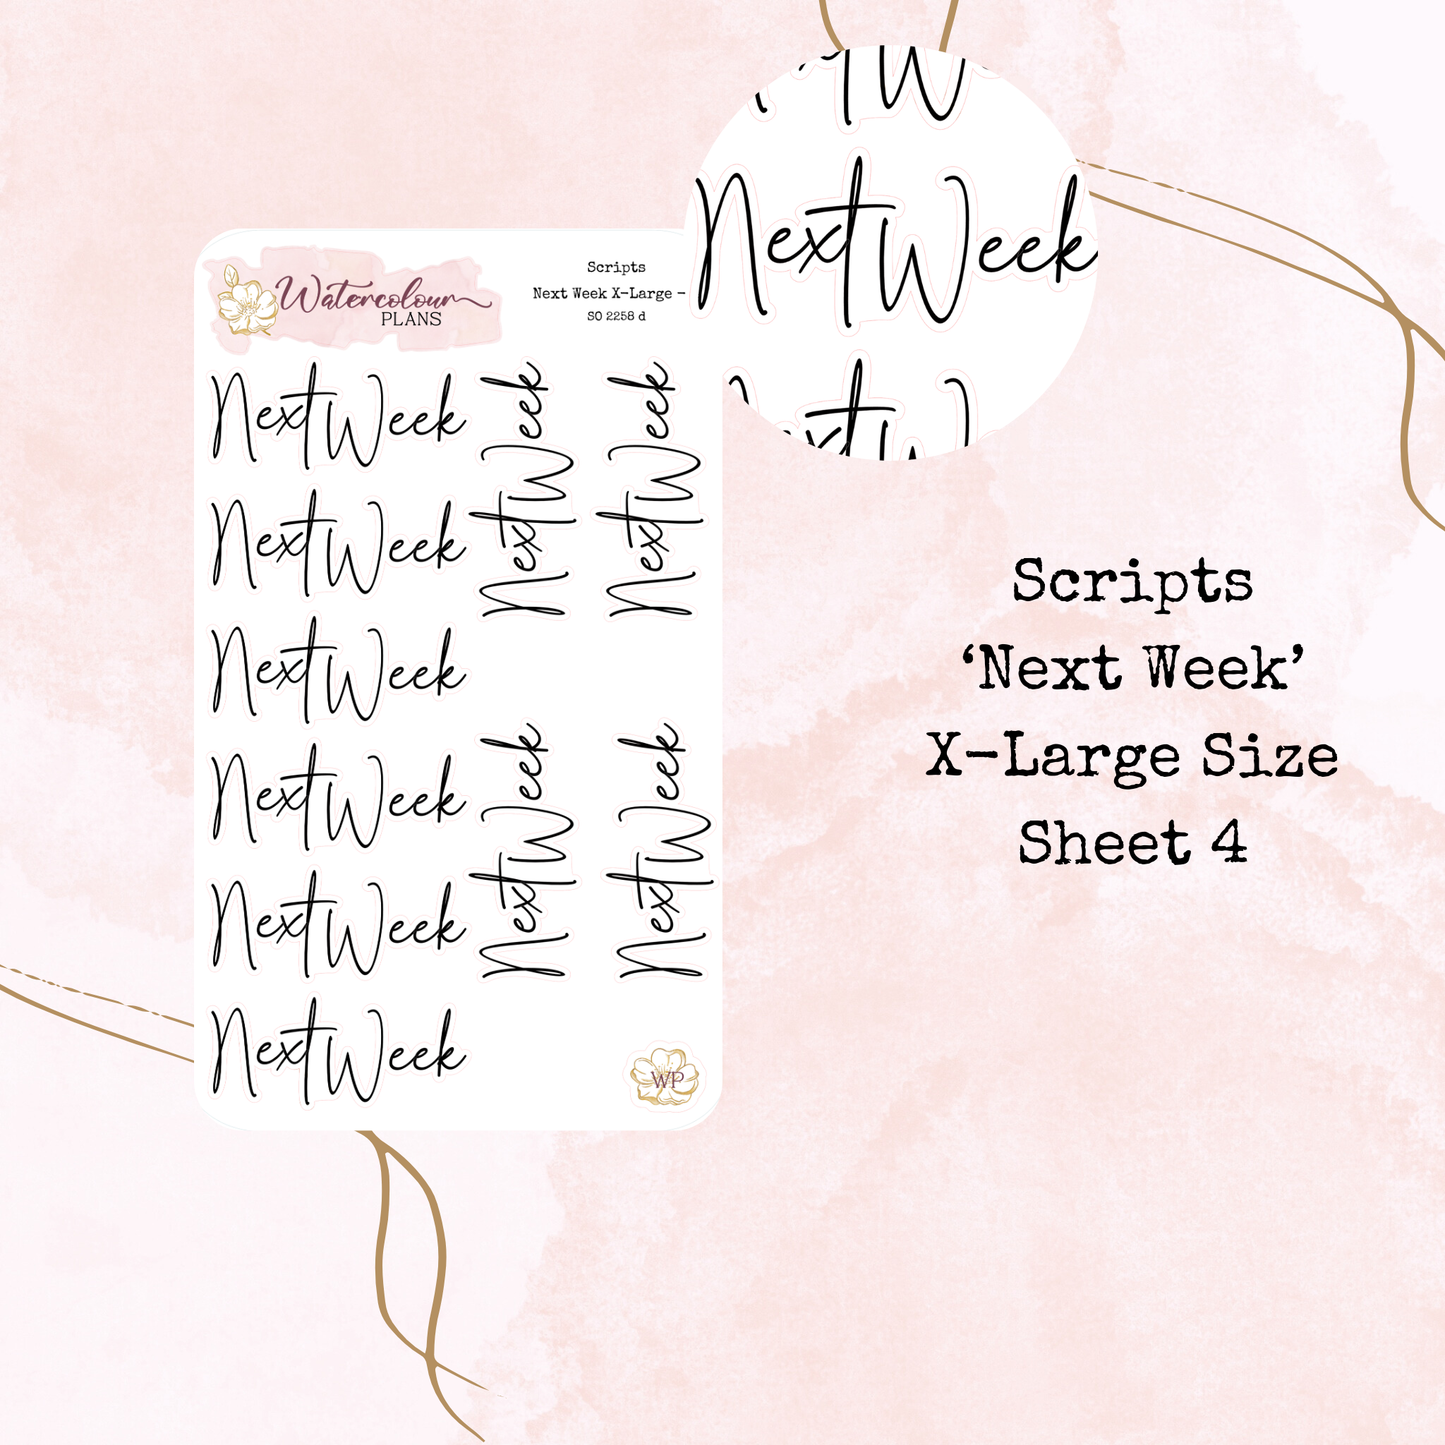 Watercolour
PLANS
Scripts
Next Week X-Large -
SO 2258 d
Next Week
Next Week
Next Week
Next Week
Next Week
Next Week
Next Week
Next Week
Next Week
Next Week
WP
Next Week
Scripts
‘Next Week’
X-Large Size
Sheet 4